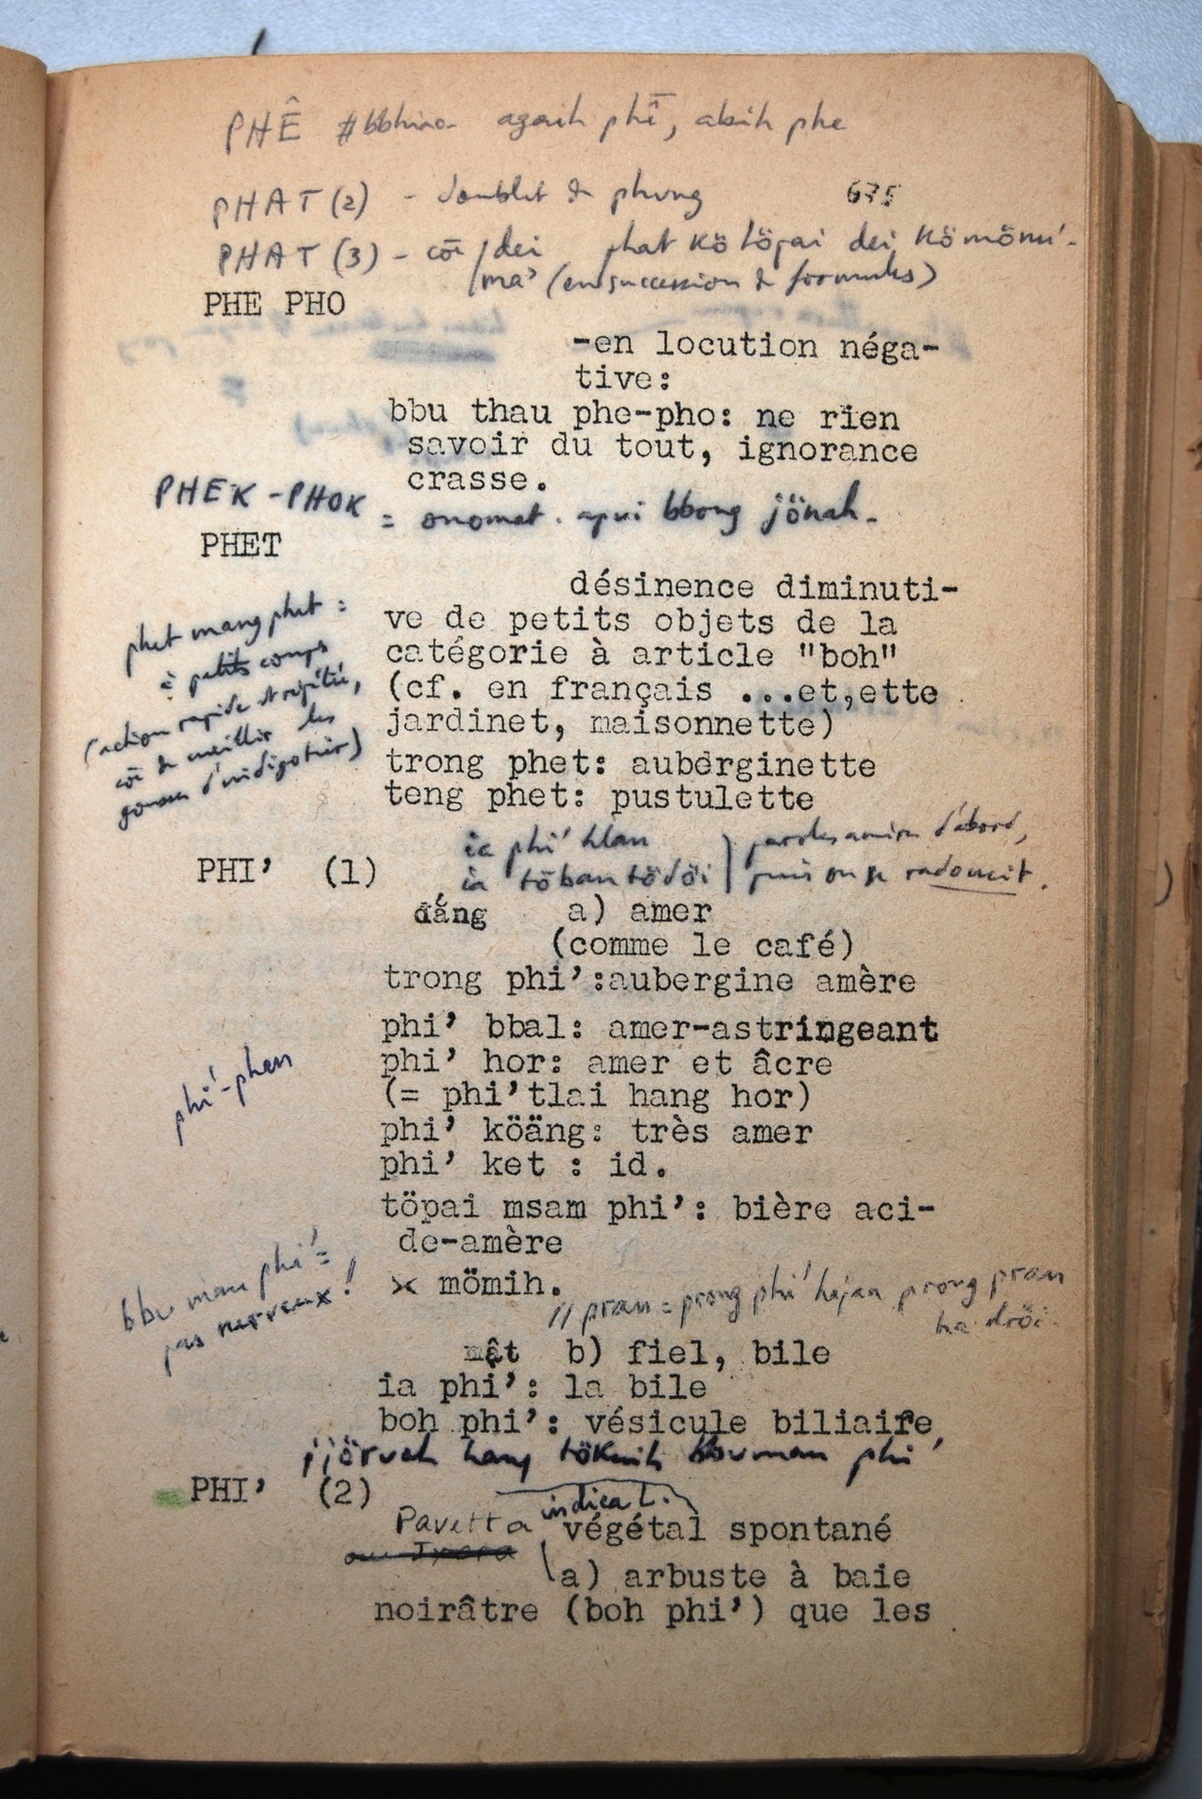 PHÊ # bbhiao agaih phi, abih phe
PHAT (2) - doublet de phung 675
PHAT (3) - cö / dei phat kö töpai dei kömönu'-
/ ma' (en succession de formules)
PHE PHO
-en locution néga-
tive:
bbu thau phe-pho: ne rien
savoir du tout, ignorance
crasse.
PHEK - PHOK = onomat. apui bbong jönah.
PHET
désinence diminuti-
ve de petits objets de la
catégorie à article "boh"
(cf. en français ...et,ette
jardinet, maisonnette)
trong phet: auberginette
teng phet: pustulette
phet mang phet :
à petits coups
(action rapide et répétée,
de cueillir les
gousses d'indigotier)
ia phi' hlan ) paroles amères d'abord,
PHI' (1)
ia töban tödöi ) puis on se radoucit.
đắng a) amer
(comme le café)
trong phi':aubergine amère
phi' bbal: amer-astringeant
phi' hor: amer et âcre
(= phi'tlai hang hor)
phi'-phen
phi' köäng: très amer
phi' ket : id.
töpai msam phi': bière aci-
de-amère
bbu man phi' =
pas nerveux !
× mömih.
// pran = prong phi' hajan prong pran
ha dröi
mật b) fiel, bile
ia phi': la bile
boh phi': vésicule biliaire
jjöruah hang töknih bbuman phi'
PHI' (2)
Pavetta indica L. végétal spontané
ou Ixora
a) arbuste à baie
noirâtre (boh phi') que les